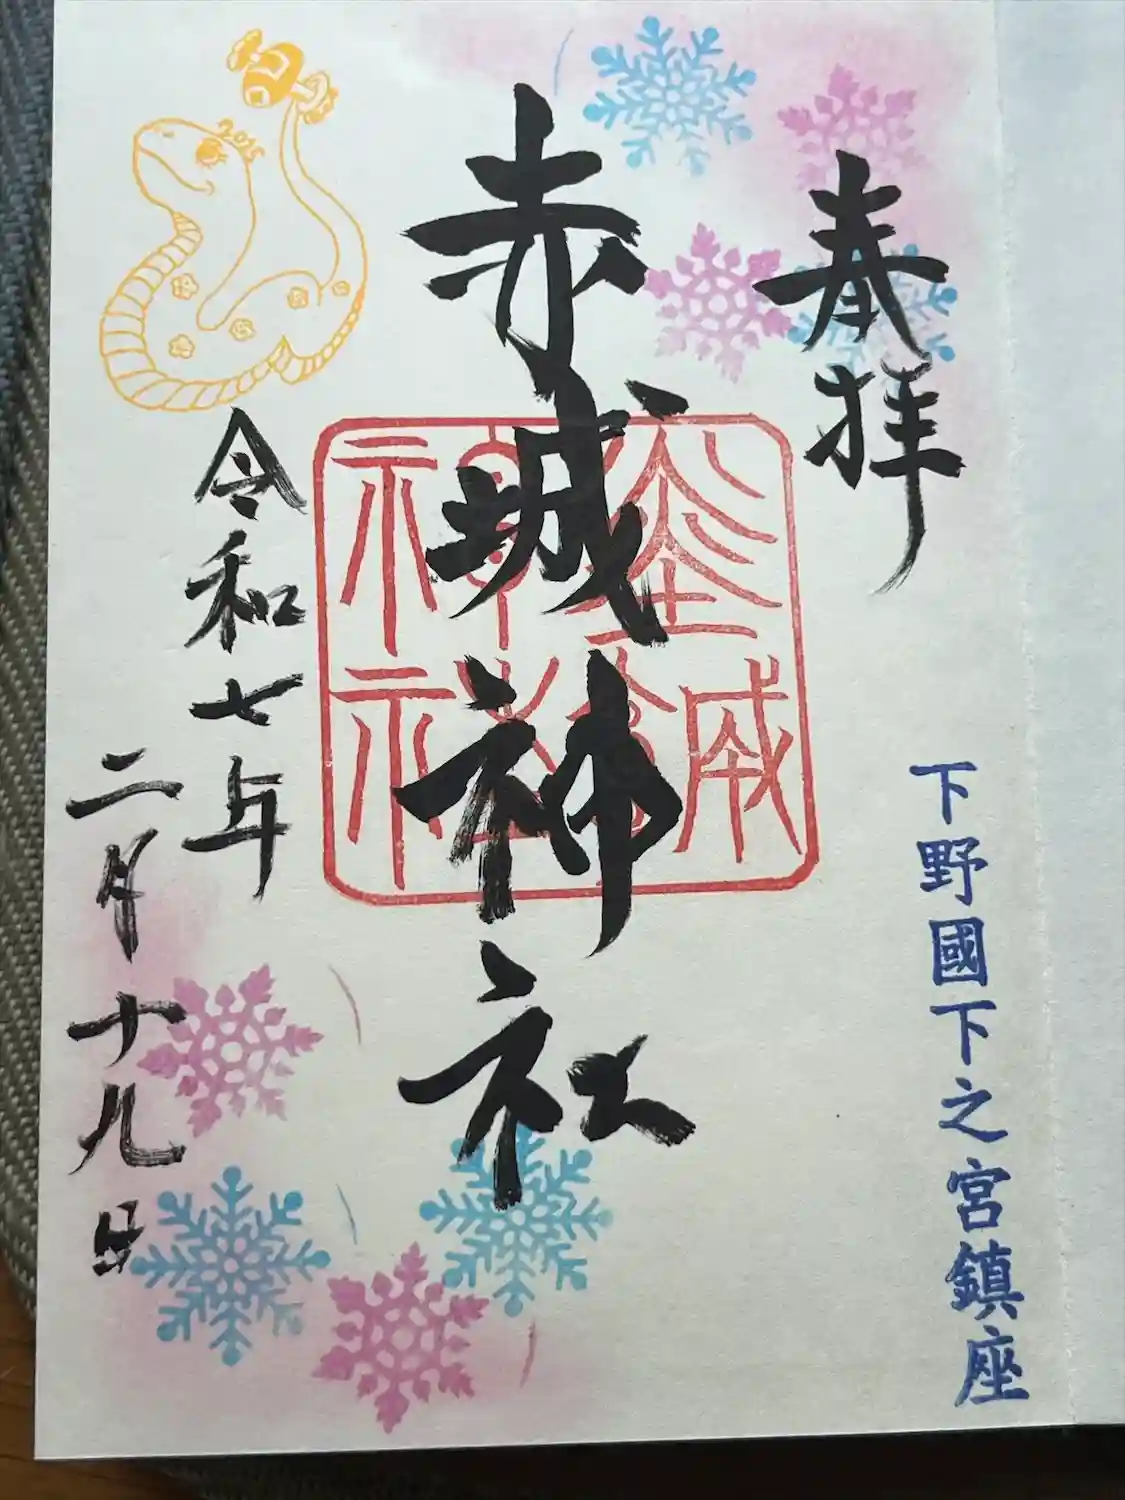 奉拝
下野國下之宮鎮座
赤城神社
令和七年
二月十九日
2025